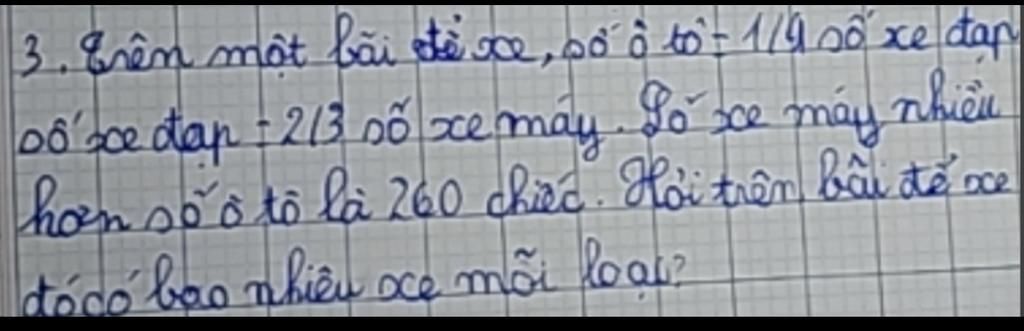 3. Trên một bãi để xe, số ô tô = 1/9 số xe đạp
số xe đạp = 2/3 số xe máy. Số xe máy nhiều
hơn số ô tô là 260 chiếc. Hỏi trên bãi để xe
đó có bao nhiêu xe mỗi loại?